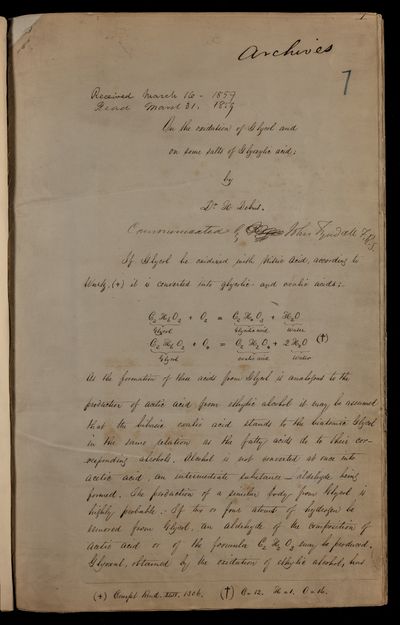 1.
Archives
7
Received March 16 - 1859
Read March 31. 1859
On the oxidation of Glycol and
on some salts of Glyoxylic acid;
by
Dr H. Debus.
Communicated by John Tyndall F.R.S.
If Glycol be oxidized with Nitric Acid, according to
Wurtz, (+) it is converted into glycolic- and oxalic acids;
C2 H6 O2 + O2 = C2 H4 O3 + H2O
Glycol Glycolic acid Water
C2 H6 O2 + O4 = C2 H2 O4 + 2 H2O (†)
Glycol oxalic acid Water
As the formation of these acids from Glycol is analogous to the
production of acetic acid from ethylic alcohol it may be assumed
that the bibasic oxalic acid stands to the biatomic Glycol
in the same relation as the fatty acids do to their cor-
responding alcohols. Alcohol is not converted at once into
acetic acid, an intermediate substance - aldehyde, being
formed. The production of a similar body from Glycol is
highly probable: If two or four atoms of hydrogen be
removed from Glycol, an aldehyde of the composition of
acetic acid or of the formula C2 H2 O2 may be produced.
Glyoxal, obtained by the oxidation of ethylic alcohol, has
(+) Compt. Rend. 1306. (†) C=12. H=1. O=16.